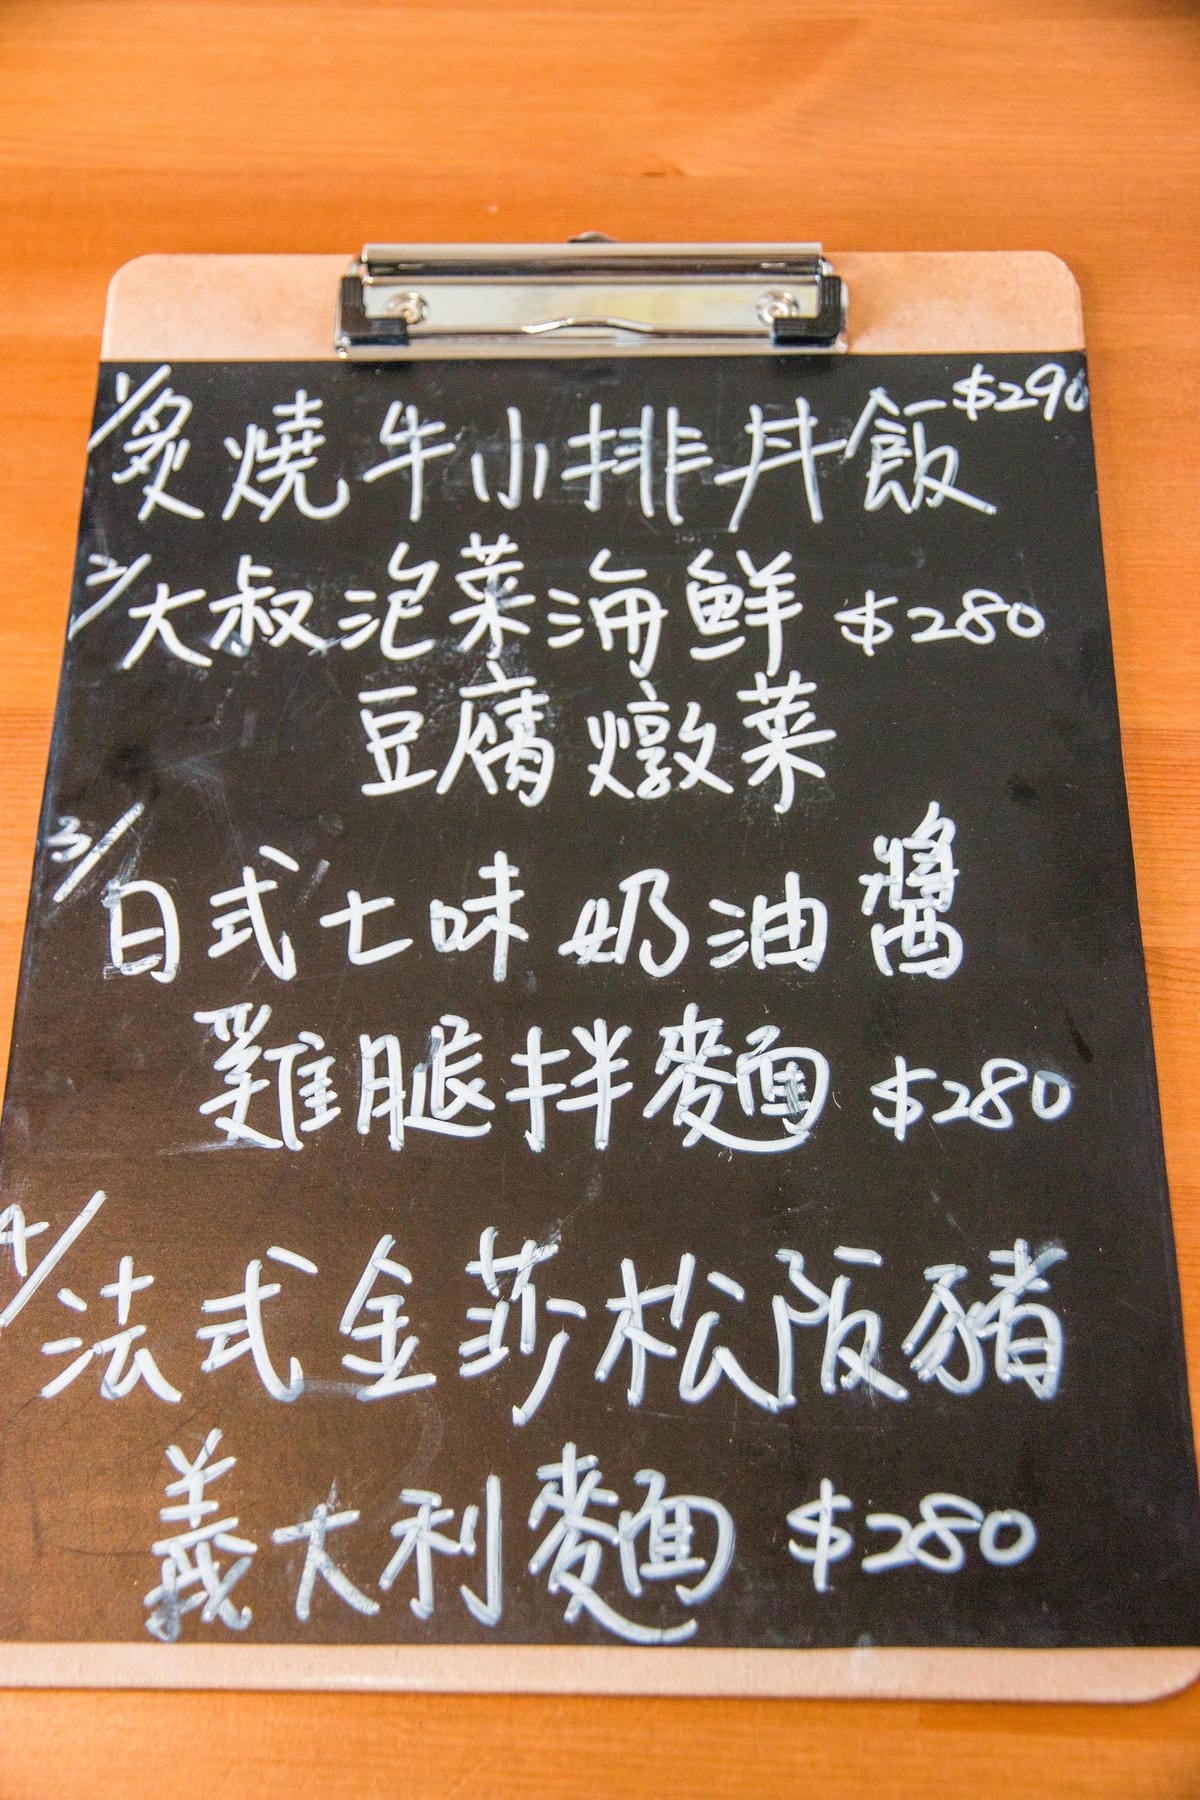 1/炙燒牛小排丼飯 $290
2/大叔泡菜海鮮 $280
豆腐燉菜
3/日式七味奶油醬
雞腿拌麵 $280
4/法式金莎松阪豬
義大利麵 $280